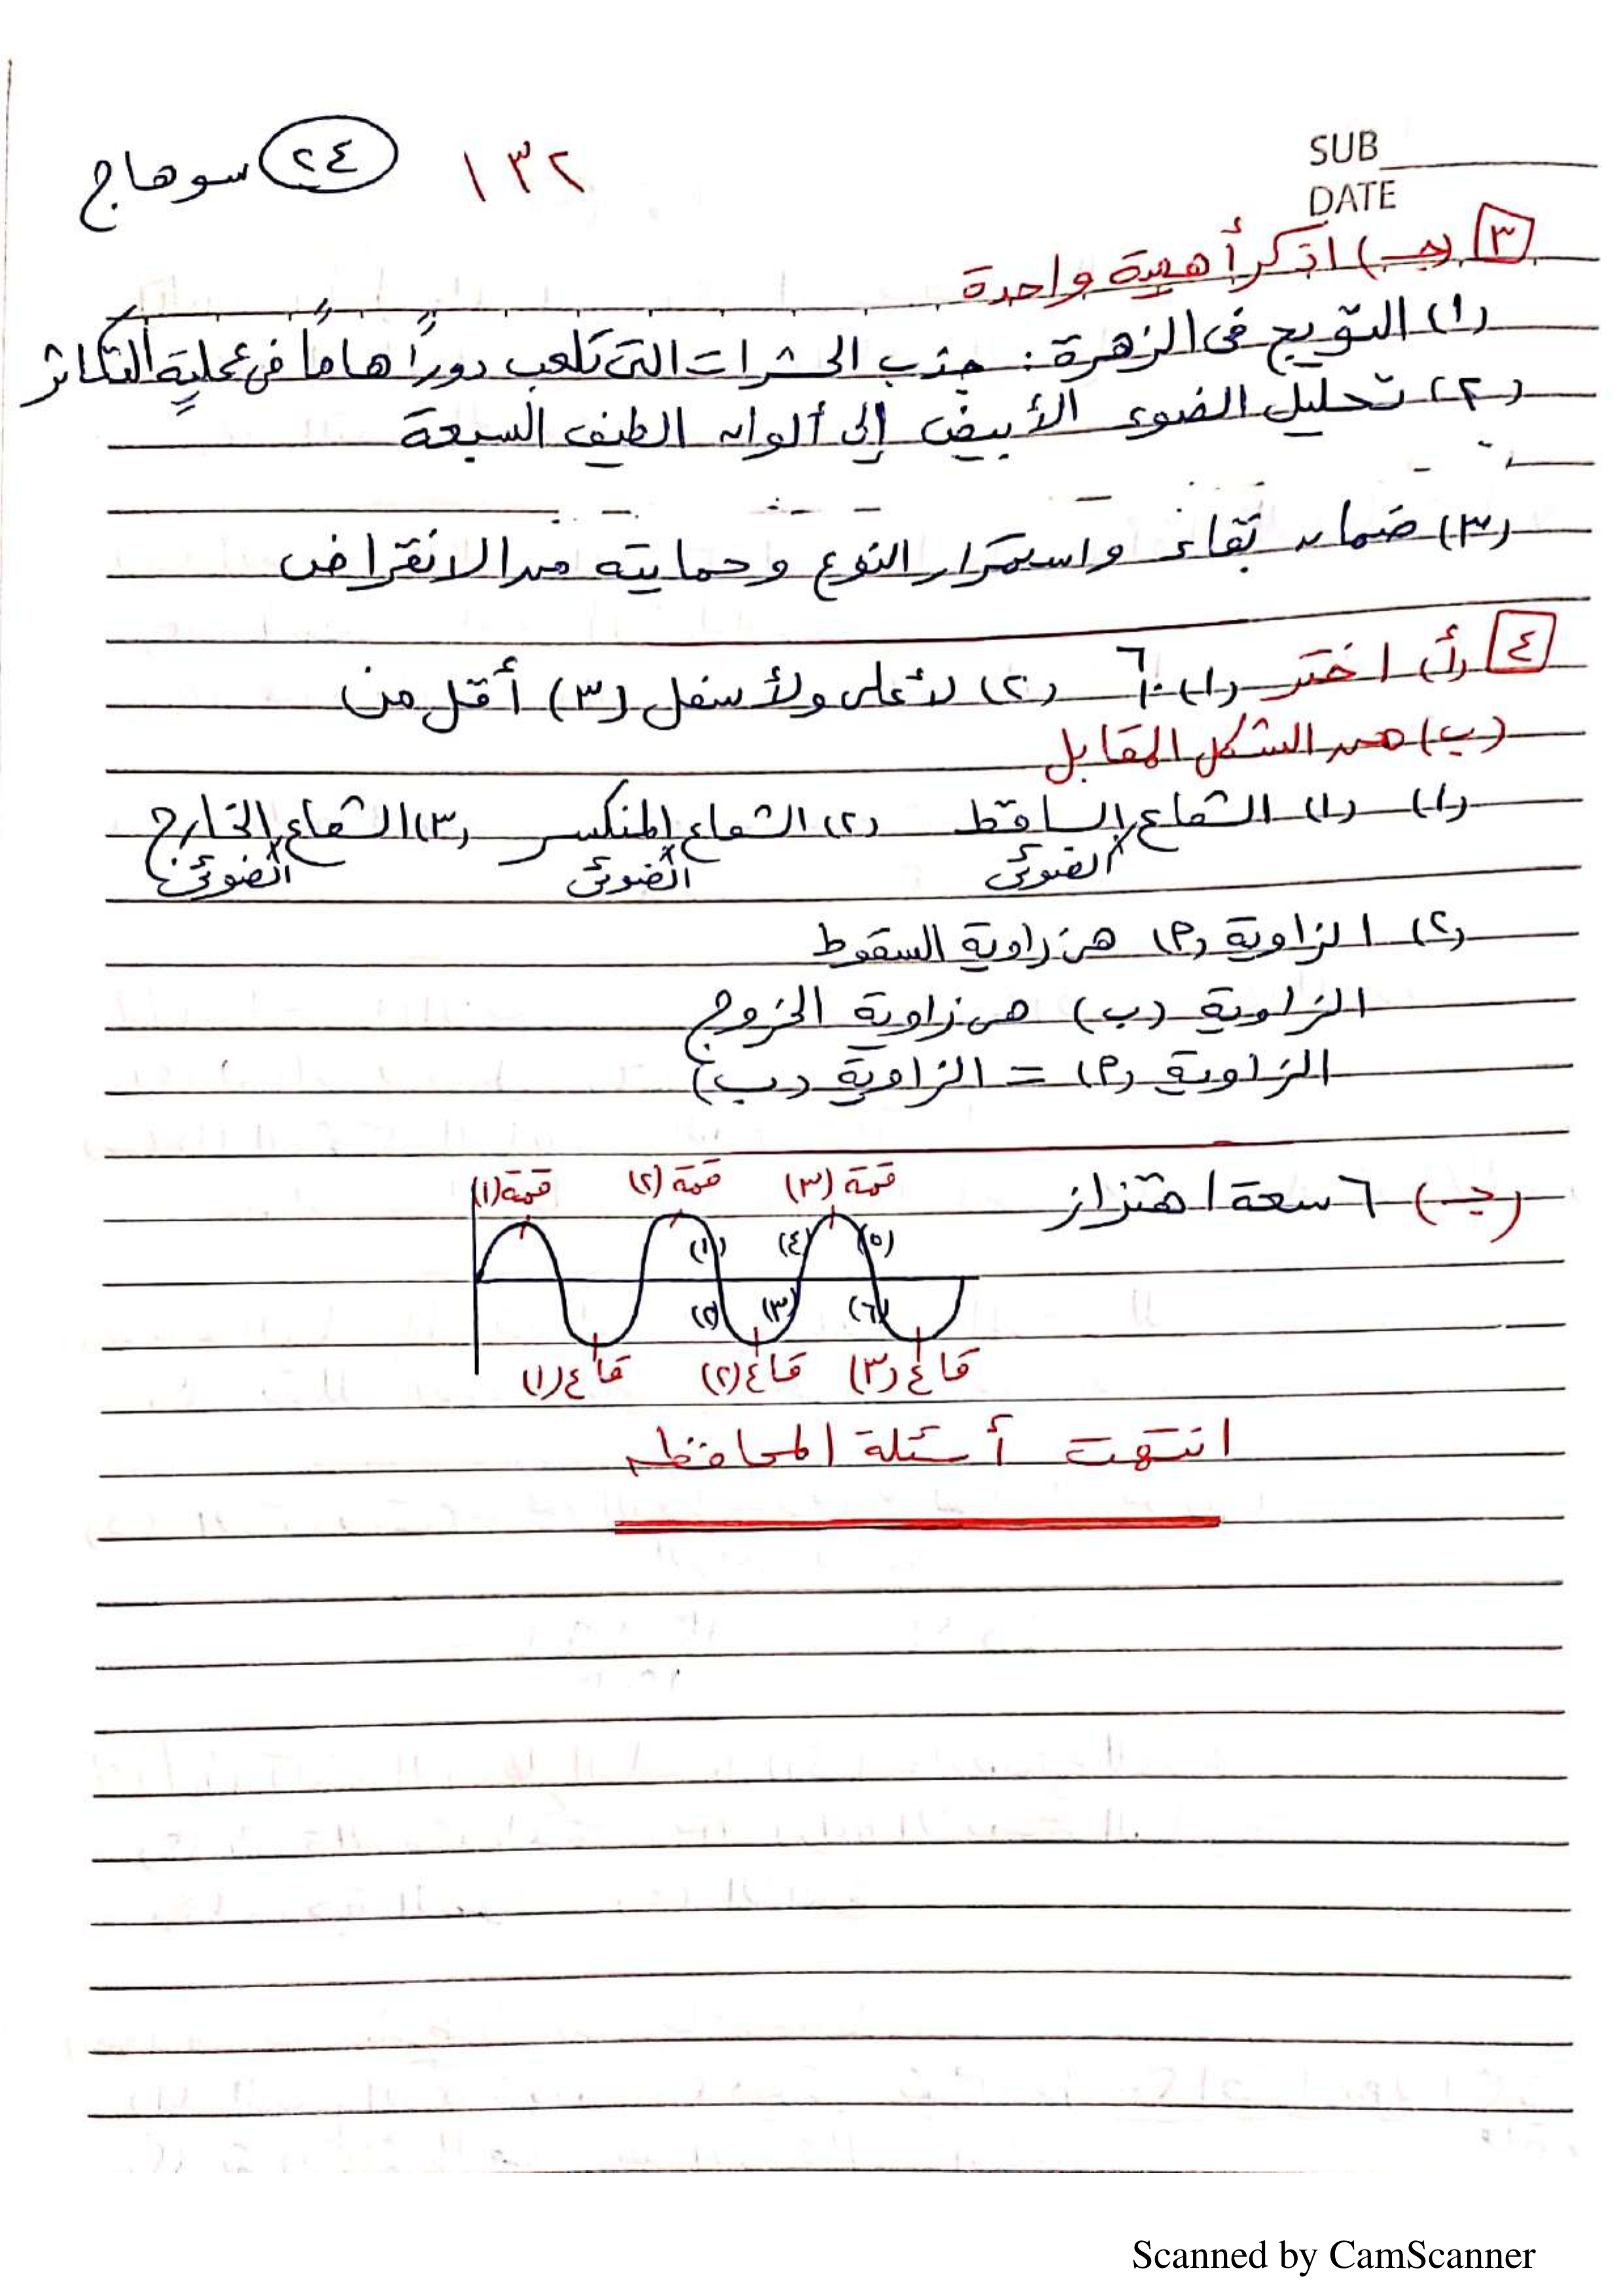 SUB
DATE
١٣٢ (٢٤) سوهاج
[٣] (جـ) اذكر أهمية واحدة
(١) التويج فى الزهرة : جذب الحشرات التى تلعب دوراً هاماً فى عملية التكاثر
(٢) تحليل الضوء الأبيض إلى ألوان الطيف السبعة
(٣) ضمان بقاء واستمرار النوع وحمايته من الانقراض
[٤] (أ) اختر (١) ٦٠ (٢) لأعلى ولأسفل (٣) أقل من
(ب) من الشكل المقابل
(١) (١) الشعاع الضوئى الساقط (٢) الشعاع الضوئى المنكسر (٣) الشعاع الضوئى الخارج
(٢) الزاوية (٢) هى زاوية السقوط
الزاوية (ب) هى زاوية الخروج
الزاوية (٢) = الزاوية (ب)
(جـ) ٦ سعة اهتزاز
قمة (١) قمة (٢) قمة (٣)
(١) (٤) (٥)
(٢) (٣) (٦)
قاع (١) قاع (٢) قاع (٣)
انتهت أسئلة المحافظه
Scanned by CamScanner